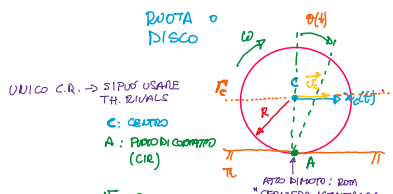 RUOTA O
DISCO
θ(t)
ω
UNICO C.R. → SI PUÒ USARE
TH. RIVALS
C
R
C: CENTRO
A: PUNTO DI CONTATTO
(CIR)
A
π
ATTO DI MOTO: ROTA